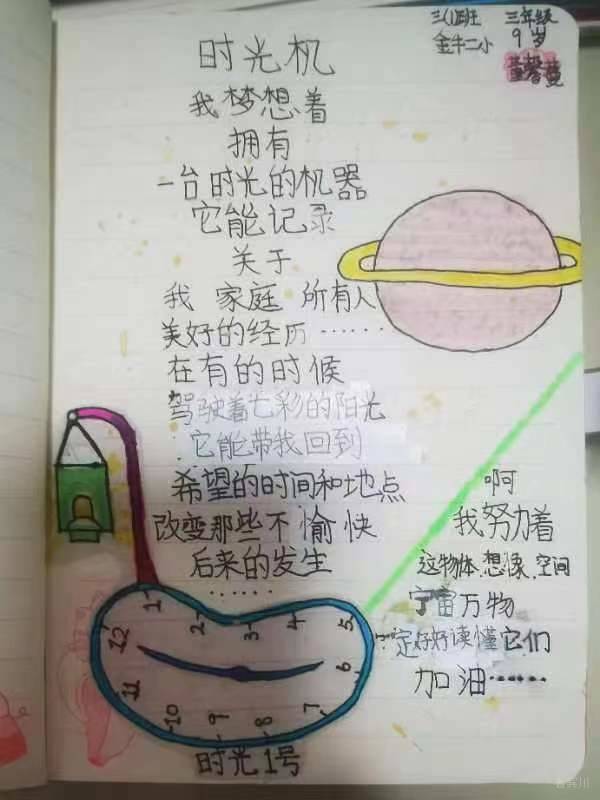 三(1)班 三年级
金牛二小 9岁
董馨蔓
时光机
我梦想着
拥有
一台时光的机器
它能记录
关于
我 家庭 所有人
美好的经历……
在有的时候
驾驶着七彩的阳光
它能带我回到
希望的时间和地点
改变那些不愉快
后来的发生
……
啊
我努力着
这物体.想象.空间
宇宙万物
一定好好读懂它们
加油……
12 1 2 3 4 5
11 10 9 8 7 6
时光1号